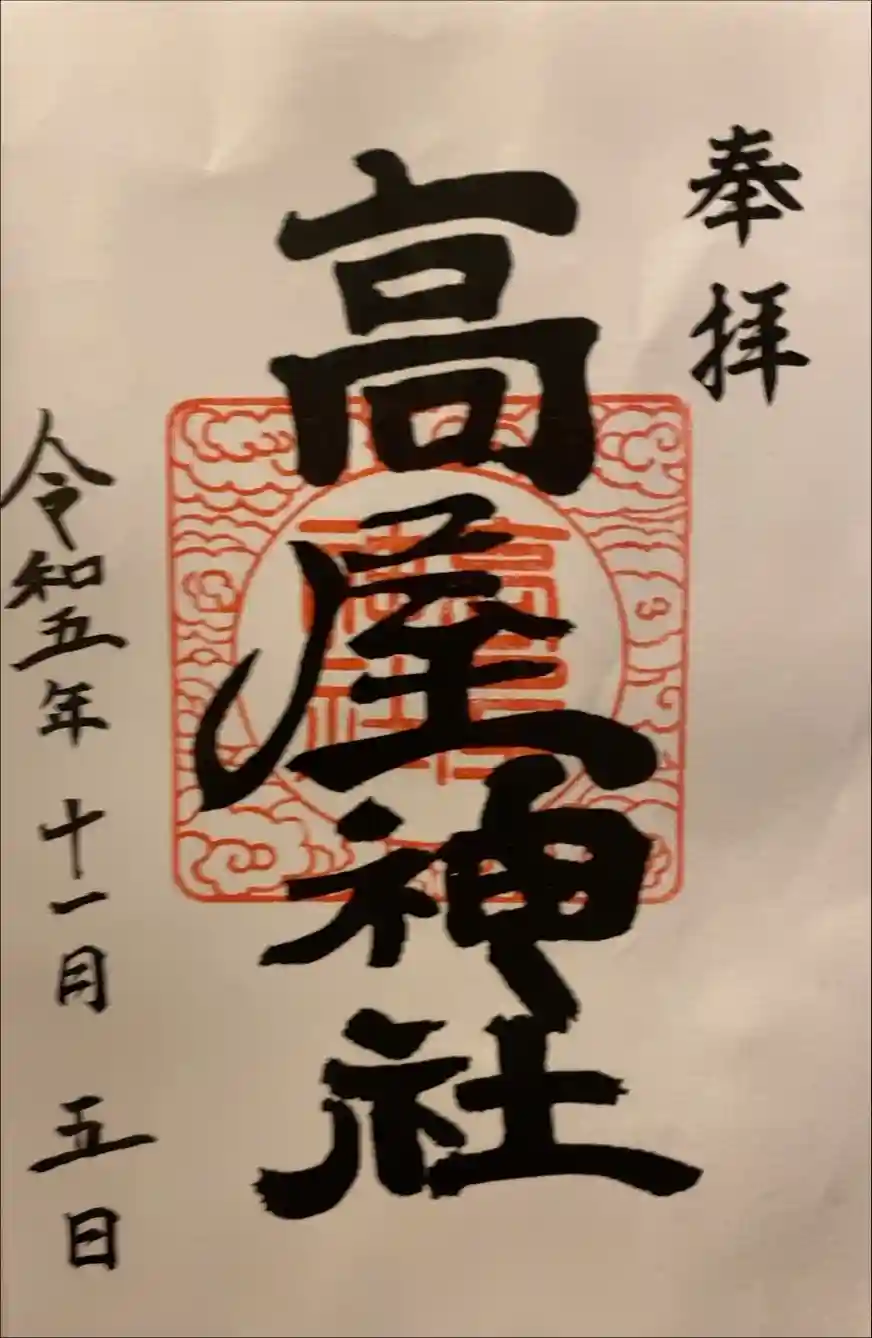 奉拝
高屋神社
高屋神社
令和五年十一月五日